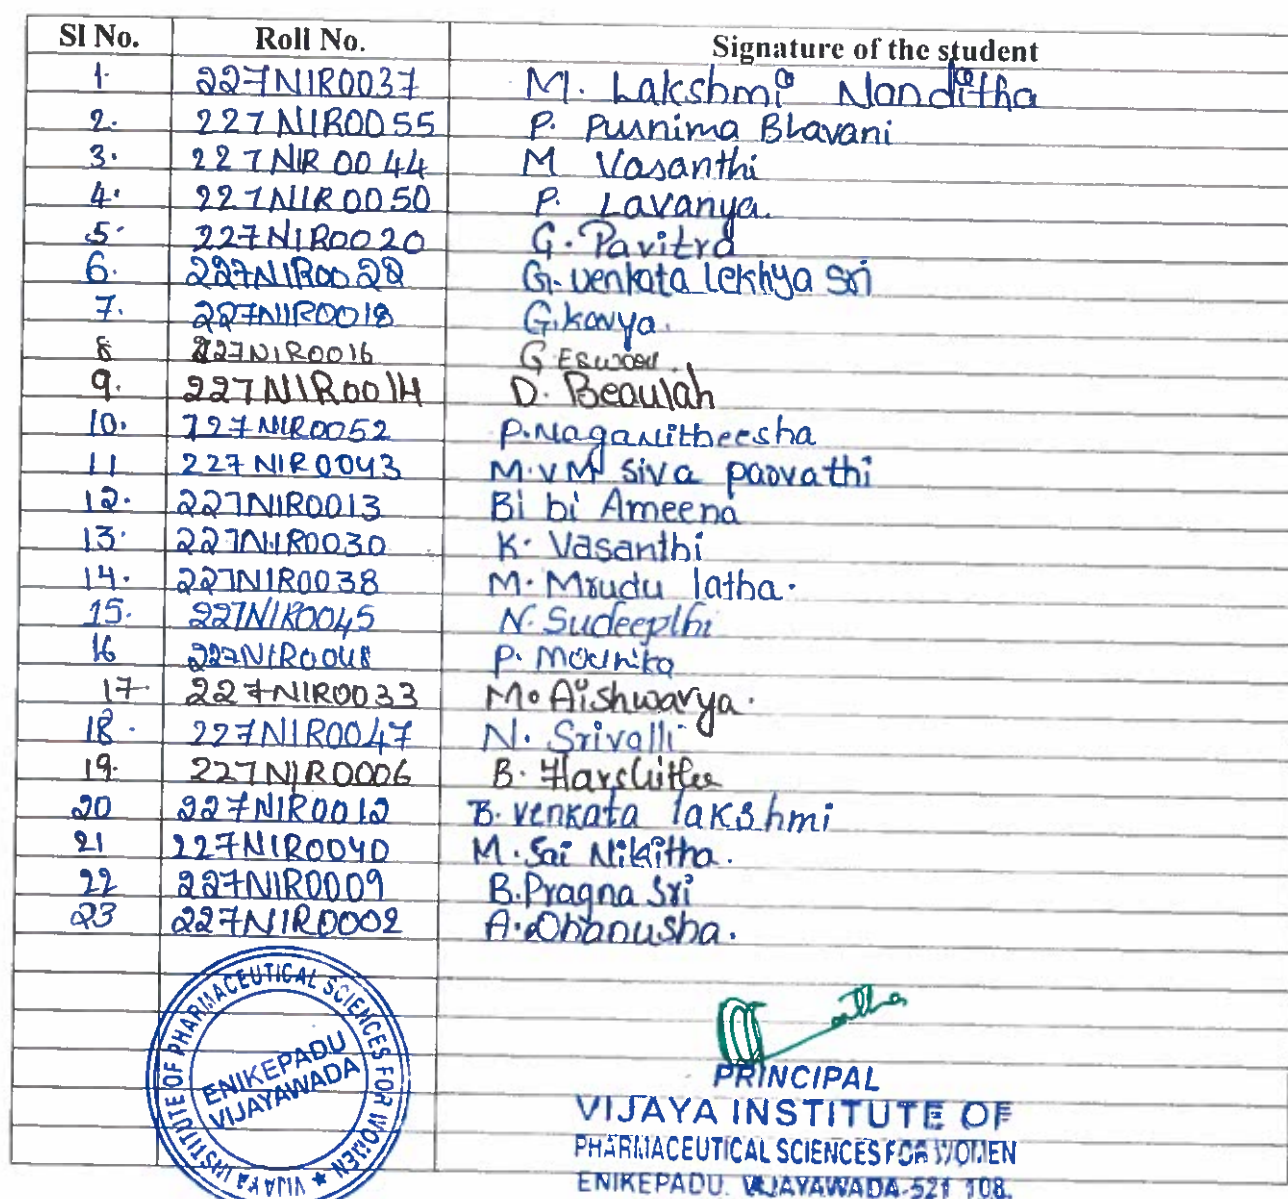 Sl No. Roll No. Signature of the student
1. 227N1R0037 M. Lakshmi Nanditha
2. 227N1R0055 P. Purnima Bhavani
3. 227N1R0044 M Vasanthi
4. 227N1R0050 P. Lavanya.
5. 227N1R0020 G. Pavitra
6. 227N1R0022 G. venkata lekhya sri
7. 227N1R0018 G.kavya.
8 227N1R0016 G Eswari.
9. 227N1R0014 D. Beaulah
10. 227N1R0052 P.Naganitheesha
11 227N1R0043 M.V.M siva parvathi
12. 227N1R0013 Bi bi Ameena
13. 227N1R0030 K. Vasanthi
14. 227N1R0038 M. Mrudu latha.
15. 227N1R0045 N. Sudeepthi
16 227N1R0048 P. Mounika
17. 227N1R0033 M. Aishwarya.
18. 227N1R0047 N. Srivalli
19. 227N1R0006 B. Harshitha
20 227N1R0012 B. venkata lakshmi
21 227N1R0040 M. Sai Nikitha.
22 227N1R0009 B.Pragna Sri
23 227N1R0002 A.Dhanusha.
VIJAYA INSTITUTE OF PHARMACEUTICAL SCIENCES FOR WOMEN ★
ENIKEPADU
VIJAYAWADA
PRINCIPAL
VIJAYA INSTITUTE OF
PHARMACEUTICAL SCIENCES FOR WOMEN
ENIKEPADU, VIJAYAWADA-521 108.